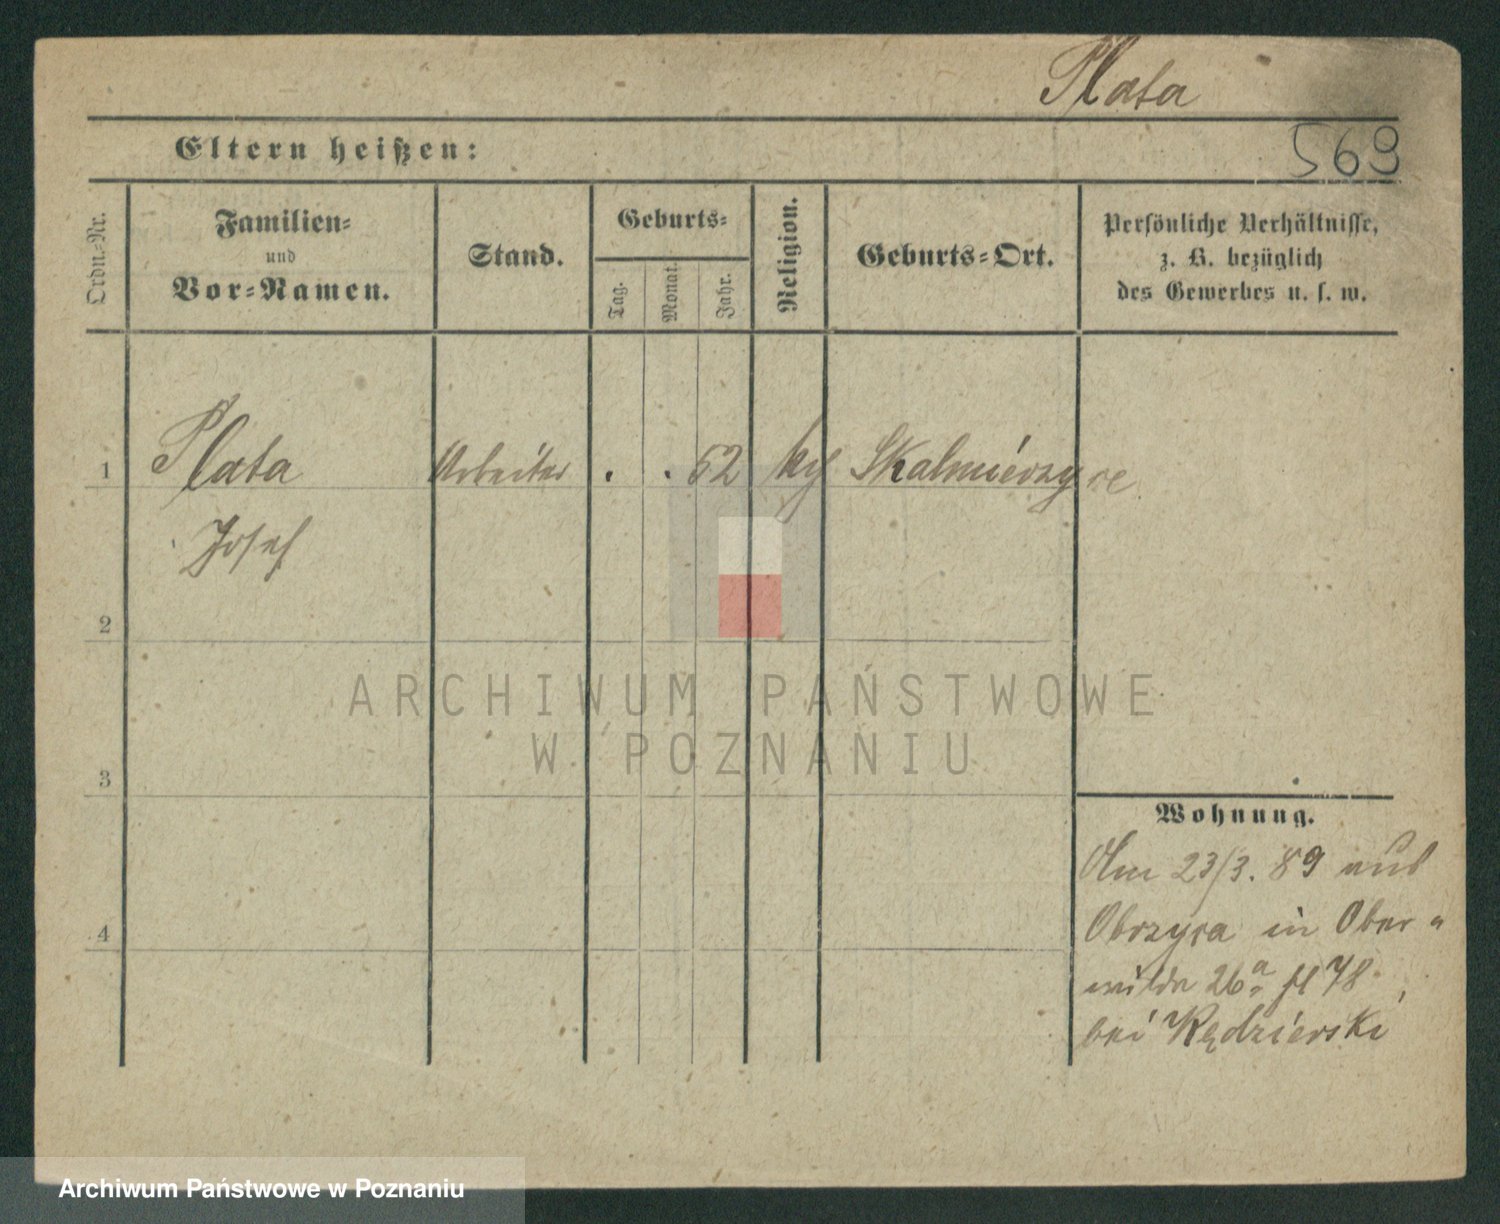 Plata
569
Eltern heißen:
Ordn.-Nr.
Familien-
und
Vor-Namen.
Stand.
Geburts-
Tag.
Monat.
Jahr.
Religion.
Geburts-Ort.
Persönliche Verhältnisse,
z. B. bezüglich
des Gewerbes u. s. w.
1 Plata Arbeiter . . 62 kg Skalmierzyce
Josef
2
3
4
ARCHIWUM PAŃSTWOWE
W POZNANIU
Wohnung.
Am 23/3. 89 aus
Obrzyca in Ober-
wilda 26a
bei Kędzierski
Archiwum Państwowe w Poznaniu